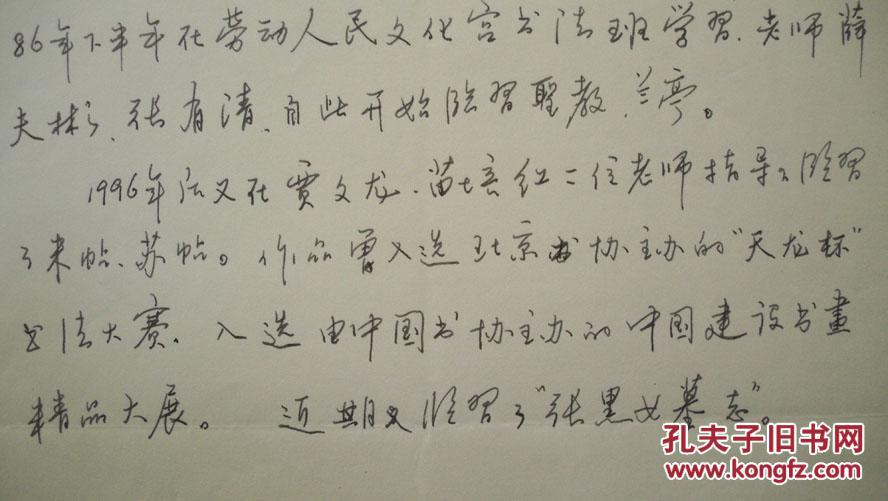 86年下半年在劳动人民文化宫书法班学習、老师薛
夫彬、张有清、自此开始临習聖教、兰亭。
1996年后又在贾文龙、苗培红二位老师指导下临習
了米帖、苏帖。作品曾入选北京书协主办的"天龙杯"
书法大赛、入选由中国书协主办的中国建设书畫
精品大展。 近期又临習了"张黑女墓志"。
孔夫子旧书网
www.kongfz.com